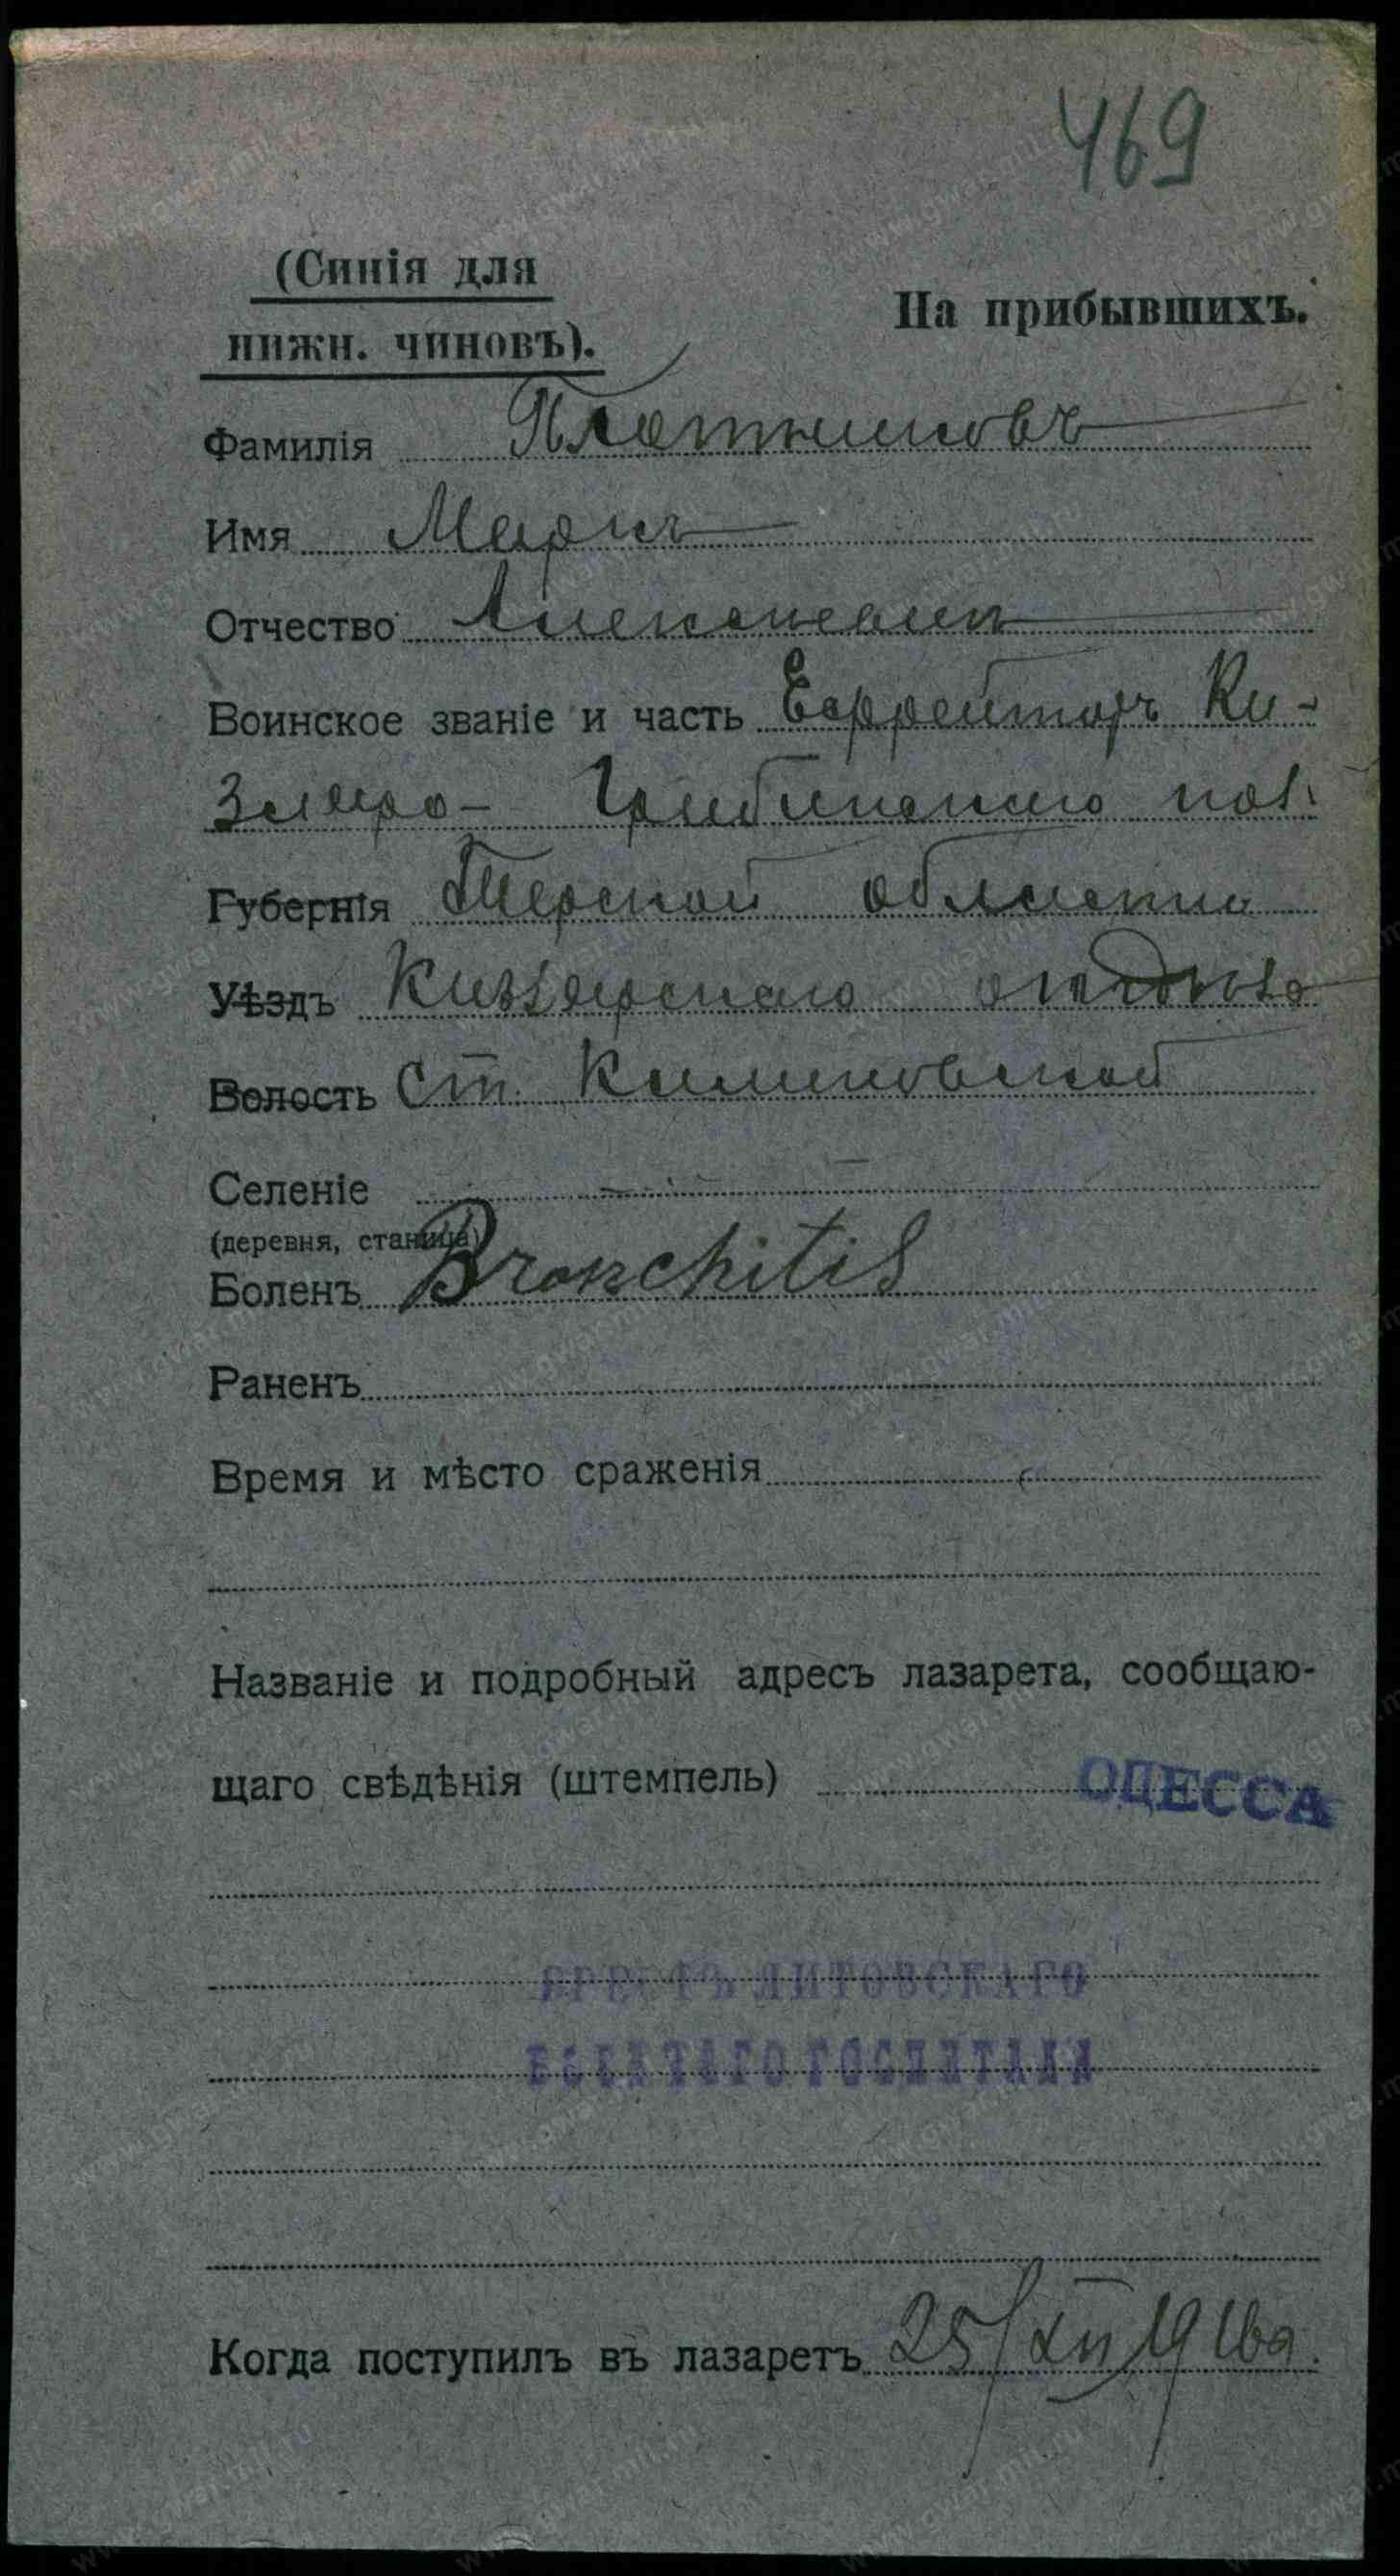 469
(Синія для
нижн. чиновъ).
На прибывшихъ.
Фамилія Плотниковъ
Имя Маркъ
Отчество Алексѣевич
Воинское званіе и часть Ефрейторъ Ки-
зляро- Гребенского пол.
Губернія Терской области
Уѣздъ Кизлярскаго отдѣла
Волость Ст. Калиновской
Селеніе —
(деревня, станица)
Боленъ Bronchitis
Раненъ
Время и мѣсто сраженія
Названіе и подробный адресъ лазарета, сообщаю-
щаго свѣдѣнія (штемпель) ОДЕССА
БРЕСТЪ ЛИТОВСКАГО
ГОСПИТАЛЯ
Когда поступилъ въ лазаретъ 25/XII 1916 г.